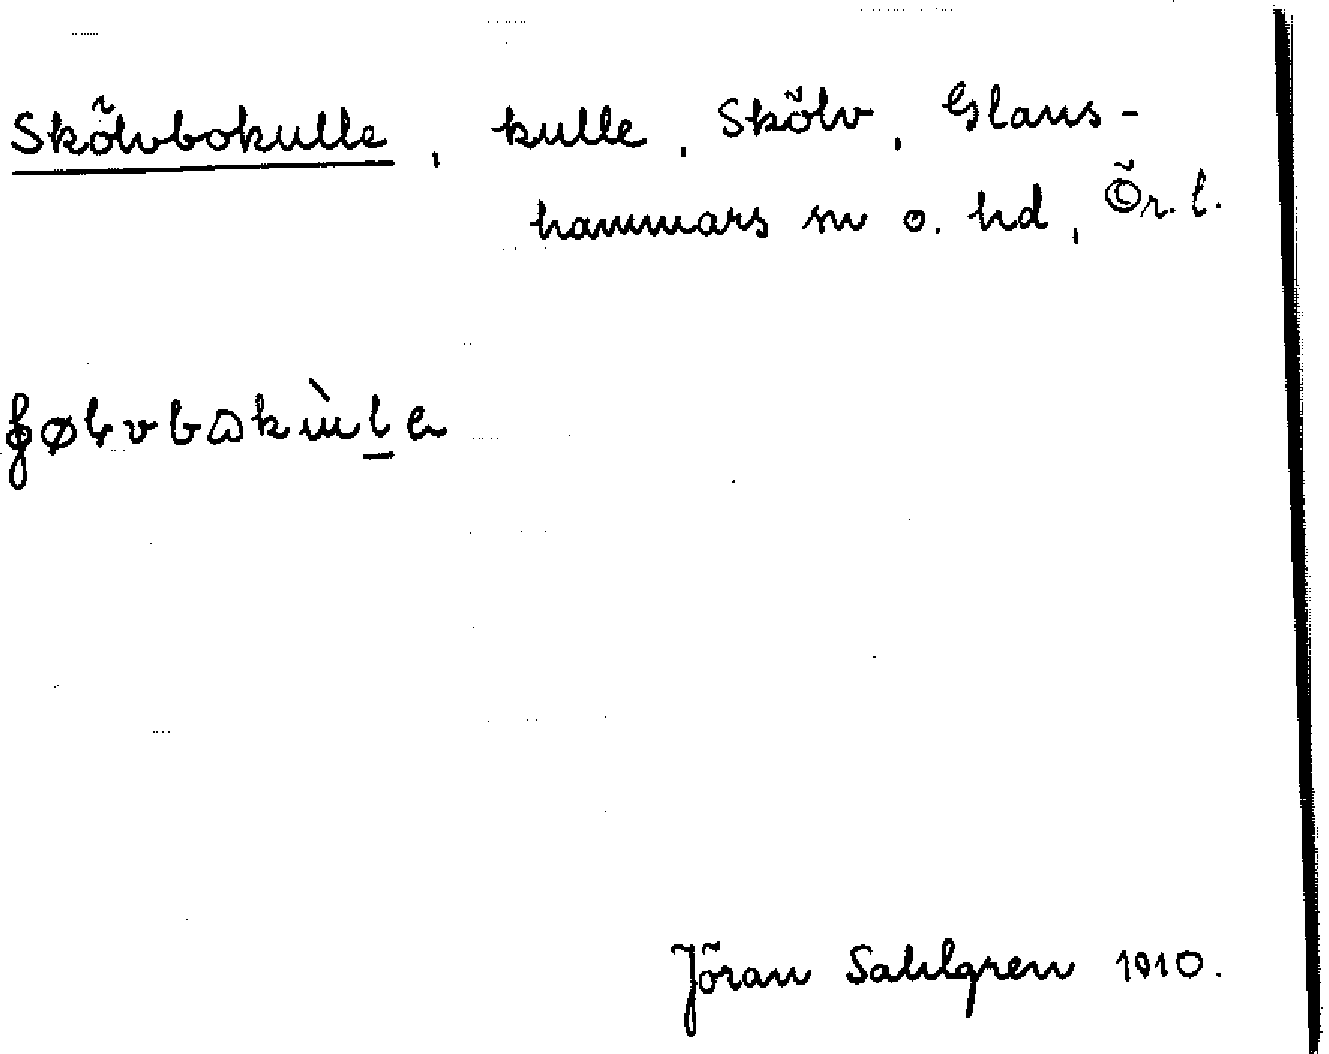 Skölvbokulle, kulle, Skölv, Glans-
hammars sn o. hd, Ör. l.
Jöran Sahlgren 1910.